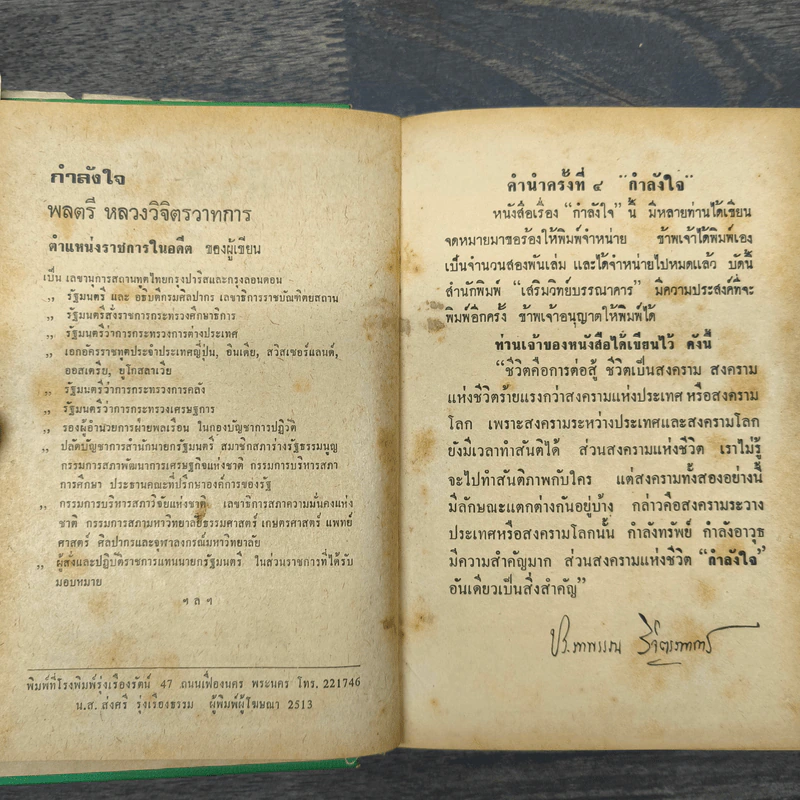 กำลังใจ
พลตรี หลวงวิจิตรวาทการ
ตำแหน่งราชการในอดีต ของผู้เขียน
เป็น เลขานุการสถานทูตไทยกรุงปารีสและกรุงลอนดอน
„ รัฐมนตรี และ อธิบดีกรมศิลปากร เลขาธิการราชบัณฑิตยสถาน
„ รัฐมนตรีสั่งราชการกระทรวงศึกษาธิการ
„ รัฐมนตรีว่าการกระทรวงการต่างประเทศ
„ เอกอัครราชทูตประจำประเทศญี่ปุ่น, อินเดีย, สวิสเซอร์แลนด์,
ออสเตรีย, ยูโกสลาเวีย
„ รัฐมนตรีว่าการกระทรวงการคลัง
„ รัฐมนตรีว่าการกระทรวงเศรษฐการ
„ รองผู้อำนวยการฝ่ายพลเรือน ในกองบัญชาการปฏิวัติ
„ ปลัดบัญชาการสำนักนายกรัฐมนตรี สมาชิกสภาร่างรัฐธรรมนูญ
กรรมการสภาพัฒนาการเศรษฐกิจแห่งชาติ กรรมการบริหารสภา
การศึกษา ประธานคณะที่ปรึกษาองค์การของรัฐ
„ กรรมการบริหารสภาวิจัยแห่งชาติ เลขาธิการสภาความมั่นคงแห่ง
ชาติ กรรมการสภามหาวิทยาลัยธรรมศาสตร์ เกษตรศาสตร์ แพทย์
ศาสตร์ ศิลปากรและจุฬาลงกรณ์มหาวิทยาลัย
„ ผู้สั่งและปฏิบัติราชการแทนนายกรัฐมนตรี ในส่วนราชการที่ได้รับ
มอบหมาย
ฯ ล ฯ
พิมพ์ที่โรงพิมพ์รุ่งเรืองรัตน์ 47 ถนนเฟื่องนคร พระนคร โทร. 221746
น.ส. ส่งศรี รุ่งเรืองธรรม ผู้พิมพ์ผู้โฆษณา 2513
คำนำครั้งที่ ๔ "กำลังใจ"
หนังสือเรื่อง "กำลังใจ" นี้ มีหลายท่านได้เขียน
จดหมายมาขอร้องให้พิมพ์จำหน่าย ข้าพเจ้าได้พิมพ์เอง
เป็นจำนวนสองพันเล่ม และได้จำหน่ายไปหมดแล้ว บัดนี้
สำนักพิมพ์ "เสริมวิทย์บรรณาคาร" มีความประสงค์ที่จะ
พิมพ์อีกครั้ง ข้าพเจ้าอนุญาตให้พิมพ์ได้
ท่านเจ้าของหนังสือได้เขียนไว้ ดังนี้
"ชีวิตคือการต่อสู้ ชีวิตเป็นสงคราม สงคราม
แห่งชีวิตร้ายแรงกว่าสงครามแห่งประเทศ หรือสงคราม
โลก เพราะสงครามระหว่างประเทศและสงครามโลก
ยังมีเวลาทำสันติได้ ส่วนสงครามแห่งชีวิต เราไม่รู้
จะไปทำสันติภาพกับใคร แต่สงครามทั้งสองอย่างนี้
มีลักษณะแตกต่างกันอยู่บ้าง กล่าวคือสงครามระวาง
ประเทศหรือสงครามโลกนั้น กำลังทรัพย์ กำลังอาวุธ
มีความสำคัญมาก ส่วนสงครามแห่งชีวิต "กำลังใจ"
อันเดียวเป็นสิ่งสำคัญ"